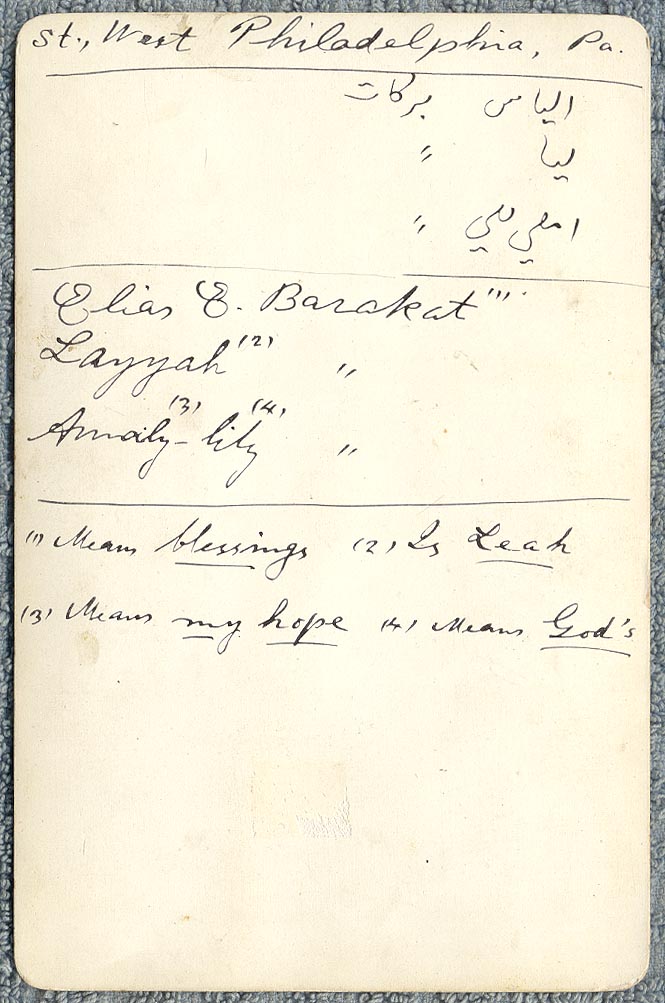 St., West Philadelphia, Pa.
الياس بركات
ليا "
املي للي "
Elias E. Barakat (1)
Layyah (2) "
Amaly (3) - lily (4) "
(1) Means blessings (2) Is Leah
(3) Means my hope (4) Means God's